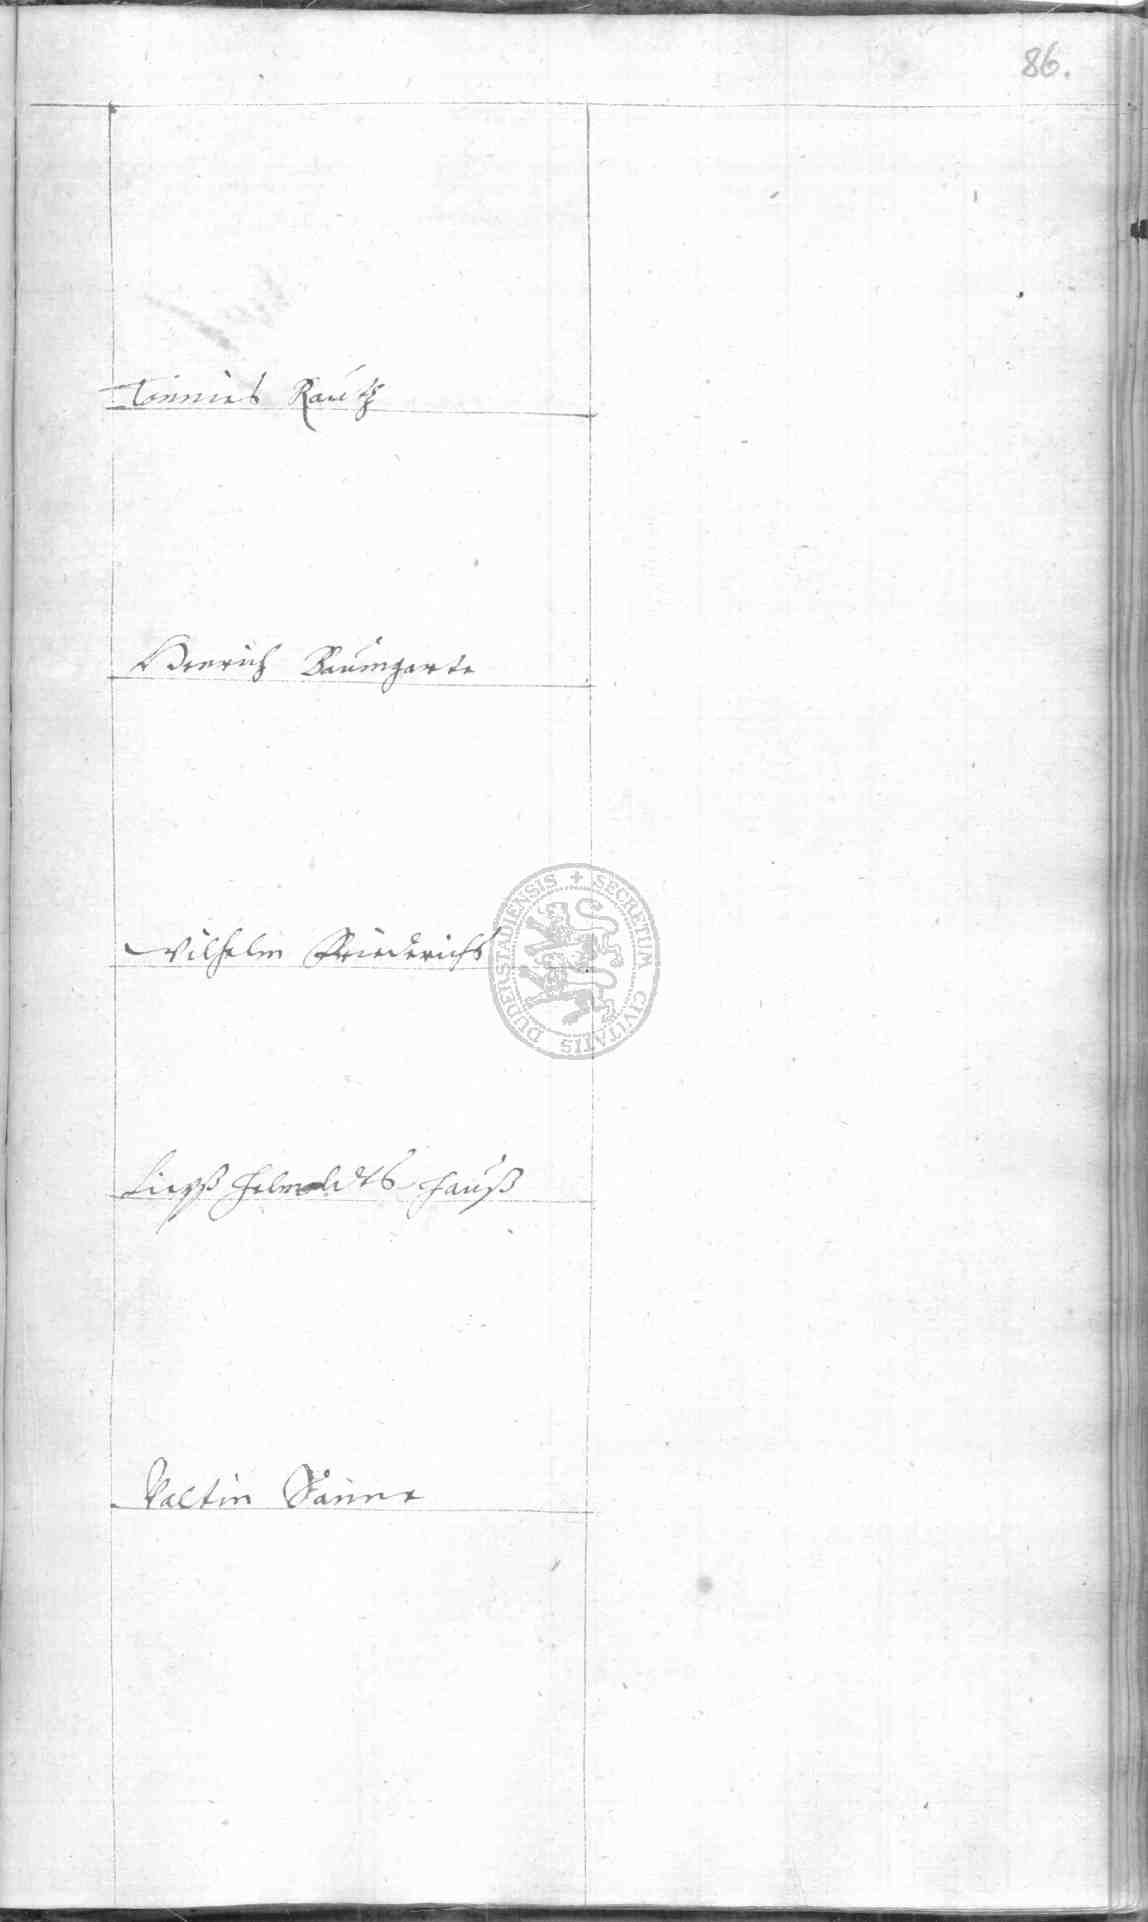 86.
Tönnies Rautz
Henrich Baumgarte
Wilhelm Friederichs
Helmoldts Hauß
Valtin Sanne
DUDERSTADIENSIS + SECRETUM CIVITATIS